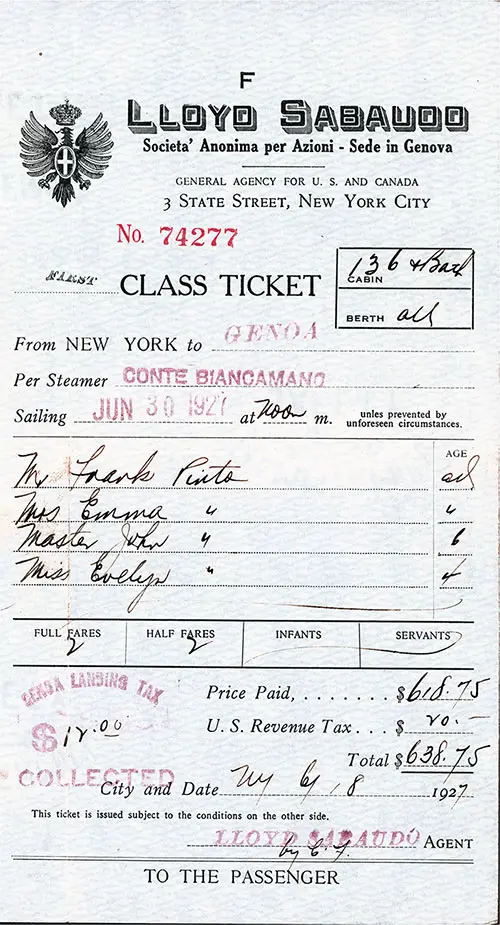 F
LLOYD SABAUDO
Societa' Anonima per Azioni - Sede in Genova
GENERAL AGENCY FOR U. S. AND CANADA
3 STATE STREET, NEW YORK CITY
No. 74277
FIRST CLASS TICKET
CABIN 136 + Bath
BERTH all
From NEW YORK to GENOA
Per Steamer CONTE BIANCAMANO
Sailing JUN 30 1927 at noon m. unles prevented by unforeseen circumstances.
AGE
Mr Frank Pinto ad
Mrs Emma " "
Master John " 6
Miss Evelyn " 4
FULL FARES 2 HALF FARES 2 INFANTS SERVANTS
GENOA LANDING TAX
$12.00
COLLECTED
Price Paid, . . . . . . . $618.75
U. S. Revenue Tax . . . $ 20.-
Total $638.75
City and Date NY 8 1927
This ticket is issued subject to the conditions on the other side.
LLOYD SABAUDO AGENT
by
TO THE PASSENGER